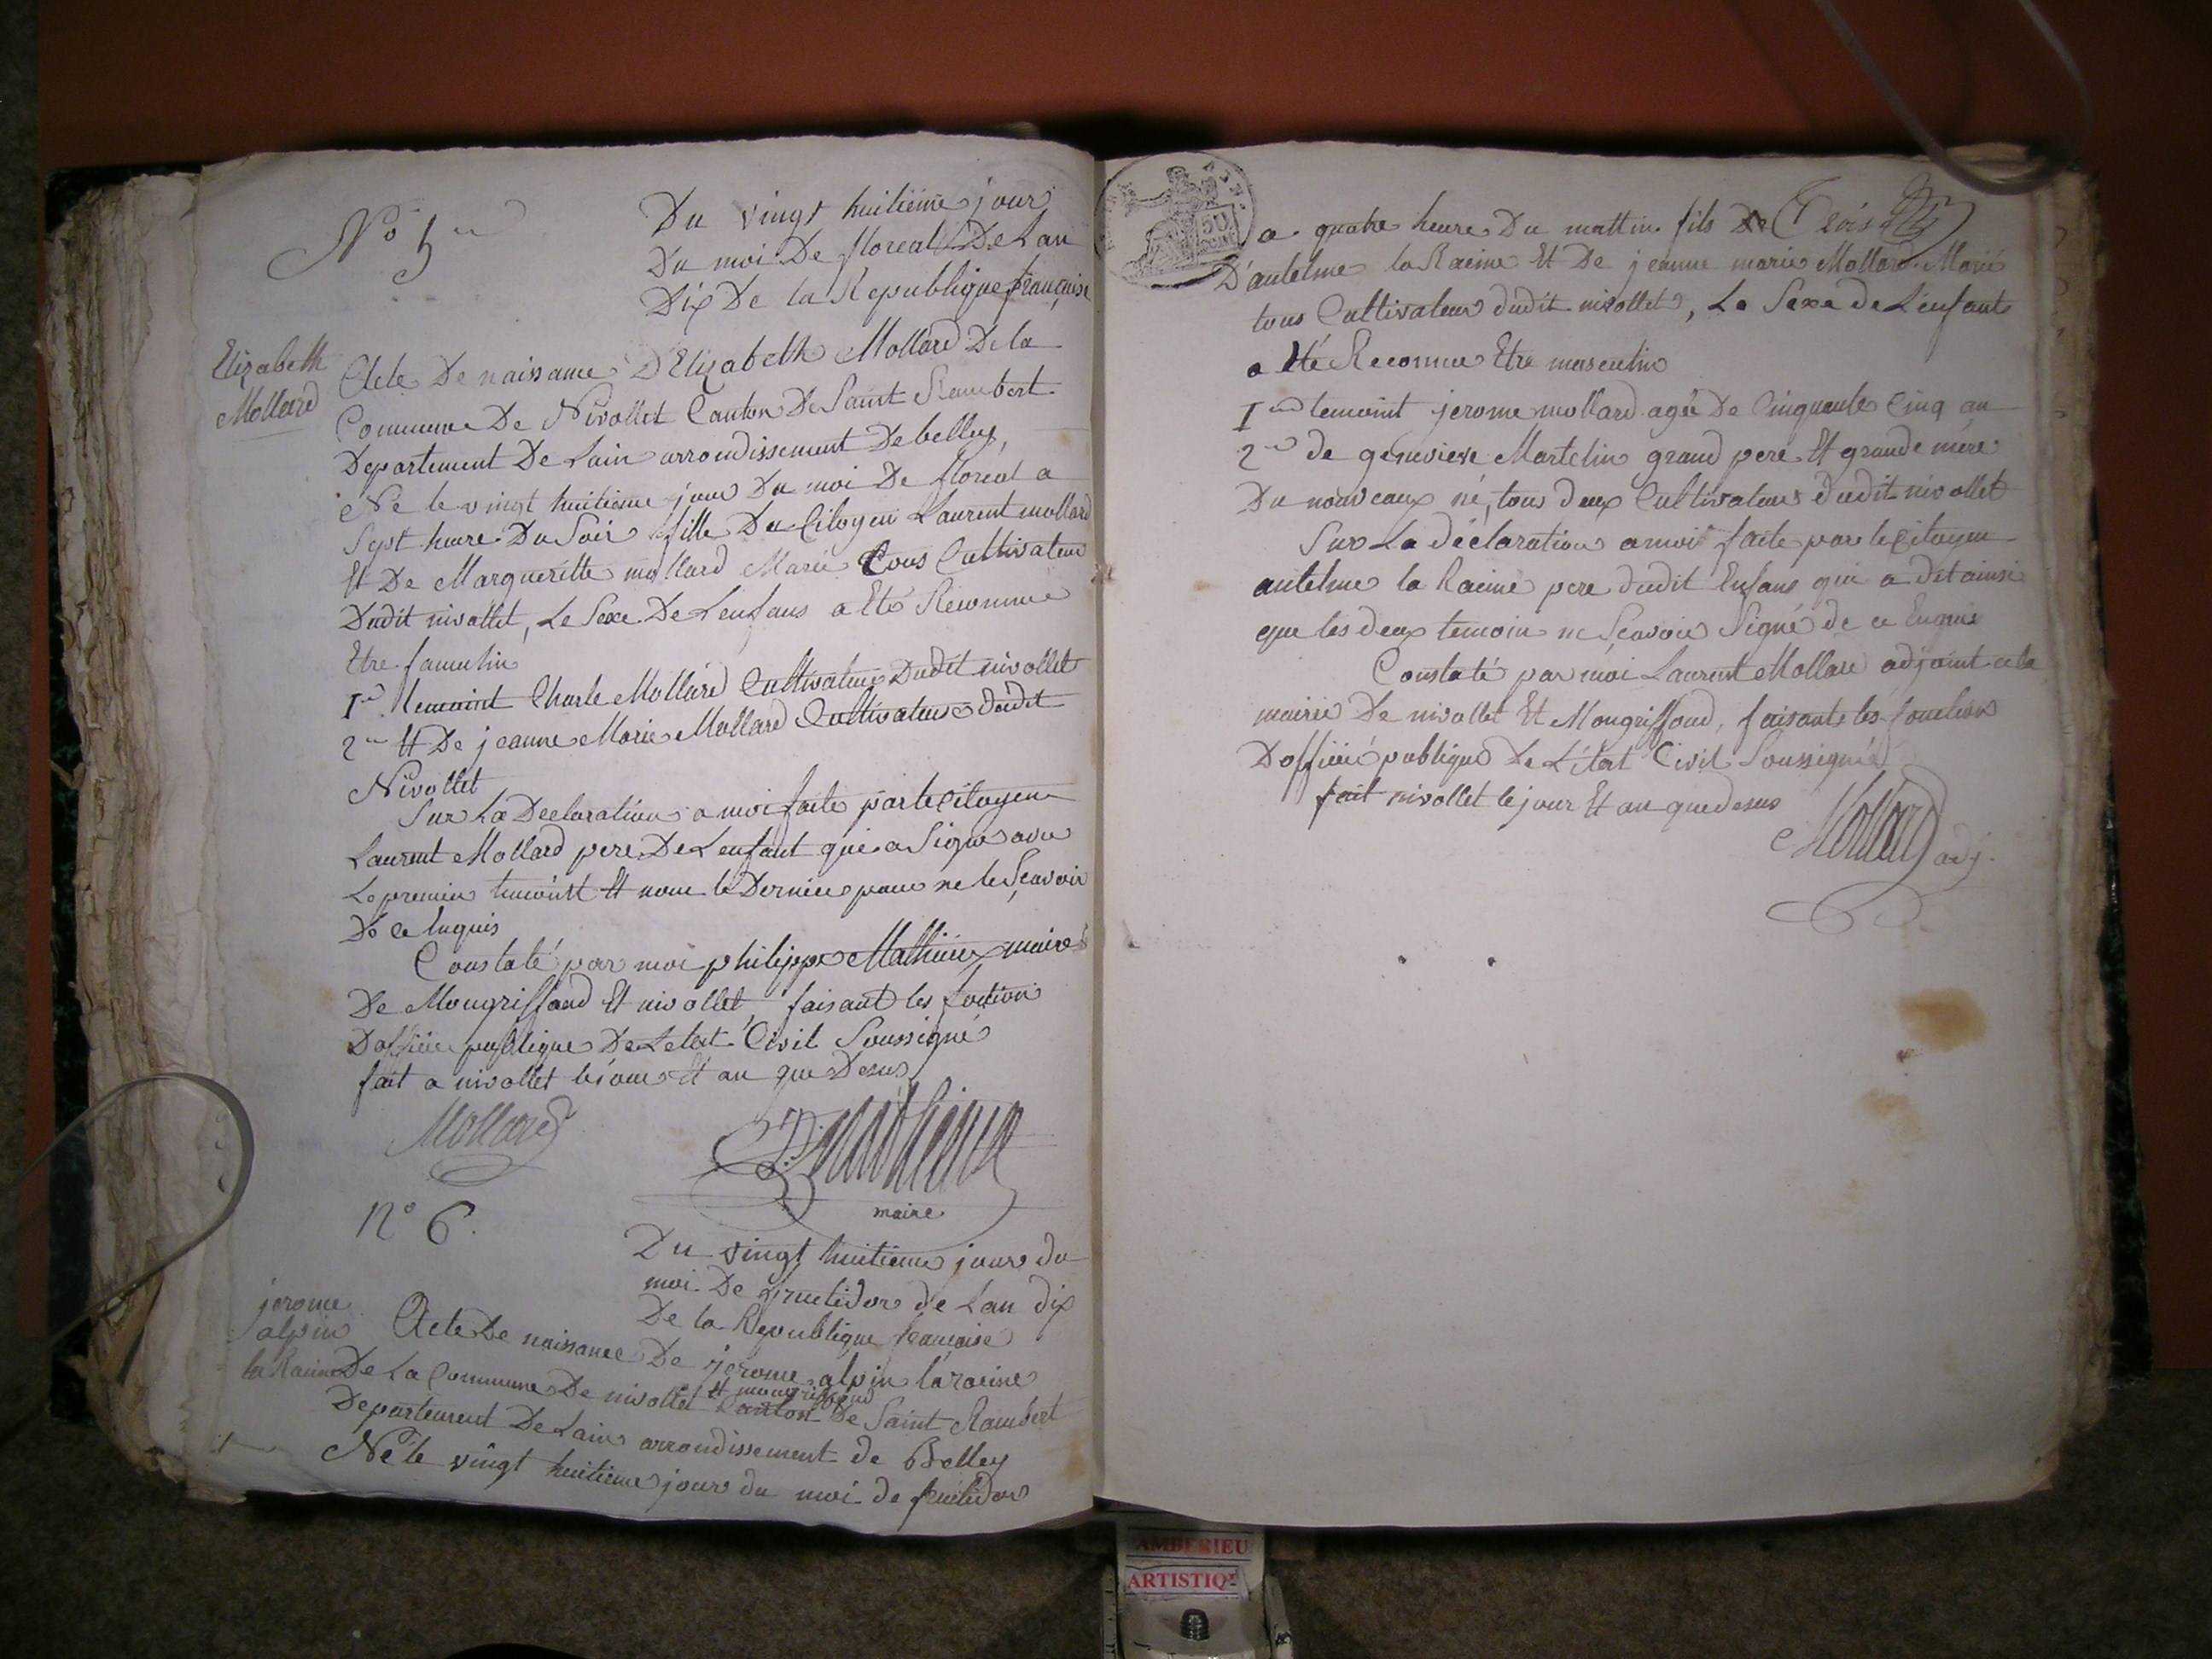 N° 5
Du vingt huitieme jour
Du moi De floreal De Lan
Dix De la Republique française
Elizabeth
Mollard
Acte De naissance D'Elizabeth Mollard De la
Commune De Nivollet Canton De Saint Rambert
Departement De Lain arrondissement De belley,
Né le vingt huitieme jour Du moi De floreal a
Sept heure Du Soir fille Du Citoyen Laurent mollard
Et De Margueritte mollard Marié tous Cultivateur
Dudit nivollet, Le Sexe De Lenfans a Eté Reconnue
Etre famulin
1er temoint Charle Mollard Cultivateur Dudit nivollet
2me Et De jeanne Marie Mollard Cultivateur dudit
Nivollet
Sur La Declaration a moi faite par le Citoyen
Laurent Mollard pere De Lenfant qui a Signé avec
Le premier temoint Et nom le Dernier pour ne le Sçavoir
De ce Enquis
Constaté par moi philippe Mathieu maire
De Mongriffond Et nivollet, faisant les fontion
Dofficié publique De Letat Civil Soussigné
fait a nivollet le jour Et an que Desus
Mollard
Mathieu
maire
N° 6.
Du vingt huitieme jour du
moi De fructidor de Lan dix
De la Republique francaise
jerome
alpin
la Raine
Acte De naissance De jerome alpin laracine
De La Commune De nivollet et mongriffond Canton De Saint Rambert
Departement De Lain arrondissement de Belley
Né le vingt huitieme jour du moi de fructidor
50
a quatre heure Du mattin fils De
D'antelme la Racine Et De jeanne marie Mollard Marié
tous Cultivateur dudit nivollet, Le Sexe de Lenfant
a été Reconnue Etre masculin
1er temoint jerome mollard agée De Cinquante Cinq an
2me de genevieve Martelin grand pere Et grande mere
Du nouveaux né, tous deux Cultivateur dudit nivollet
Sur La déclaration a moi faite par le Citoyen
antelme la Racine pere dudit Enfans qui a dit ainsi
que les deux temoin ne Sçavoir Signé de ce Enquis
Constaté par moi Laurent Mollard adjoint a la
mairie De nivollet Et Mongriffond, faisant les fonction
Dofficié publique De L'état Civil Soussigné
fait nivollet le jour Et an que desus
Mollard adj.
AMBERIEU
ARTISTIQ